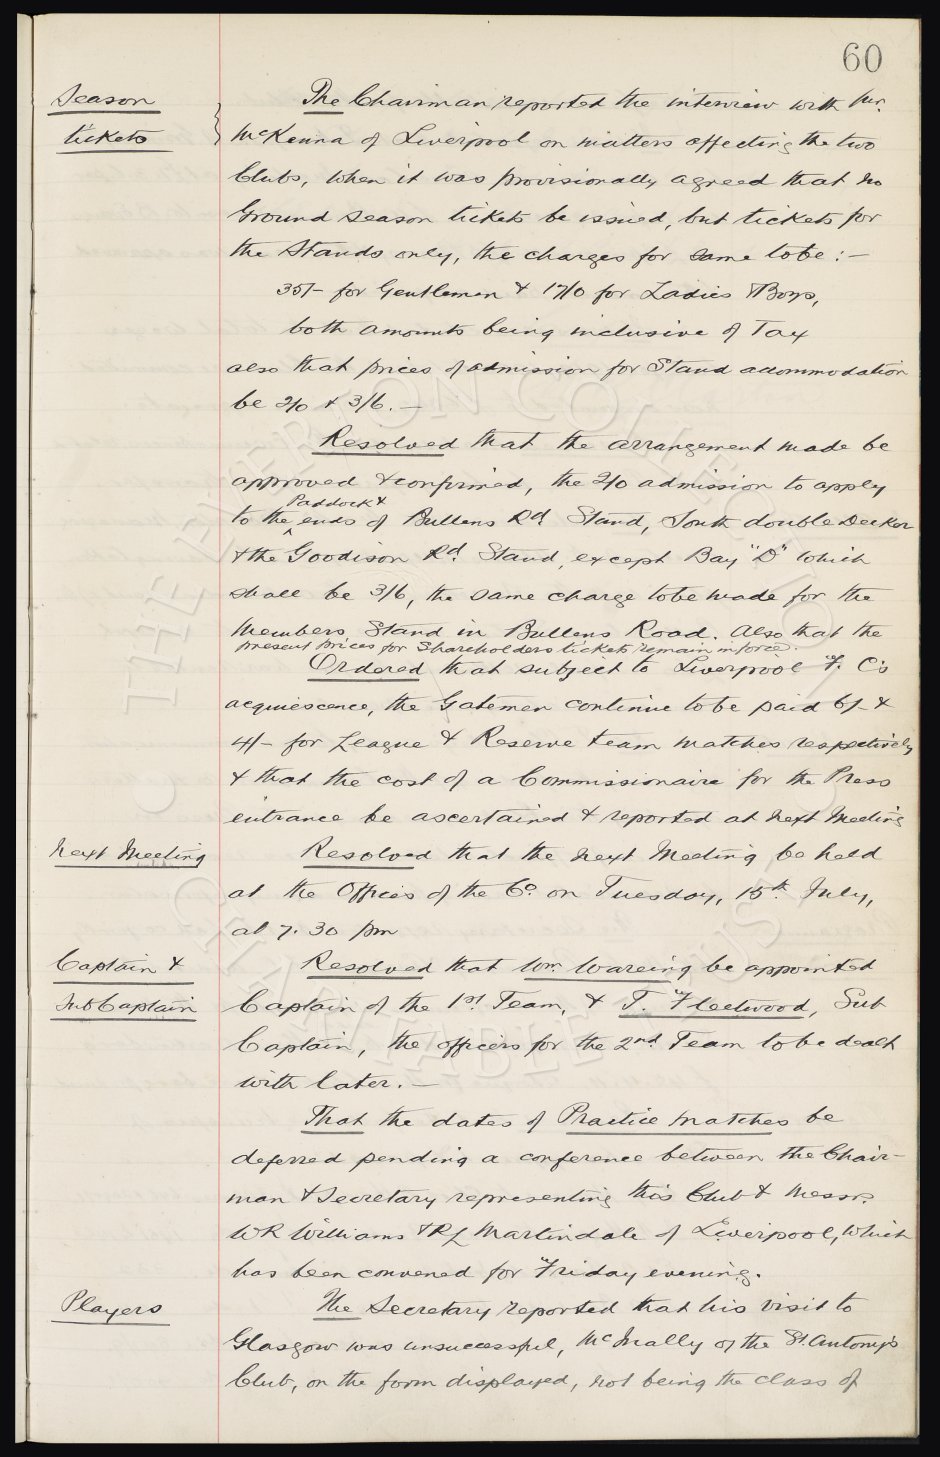 60
Season
tickets
The Chairman reported the interview with Mr.
McKenna of Liverpool on matters affecting the two
Clubs, when it was provisionally agreed that no
Ground season tickets be issued, but tickets for
the Stands only, the charges for same to be :-
35/- for Gentlemen & 17/0 for Ladies & Boys,
both amounts being inclusive of Tax
also that prices of admission for Stand accommodation
be 2/0 & 3/6. —
Resolved that the arrangement made be
approved & confirmed, the 2/0 admission to apply
Paddock &
to the ends of Bullens Rd Stand, South double Decker
& the Goodison Rd. Stand, except Bay "D" which
shall be 3/6, the same charge to be made for the
Members Stand in Bullens Road. Also that the
present prices for Shareholders tickets remain in force.
Ordered that subject to Liverpool F. C's
acquiescence, the Gatemen continue to be paid 6/- &
4/- for League & Reserve team matches respectively
& that the cost of a Commissionaire for the Press
entrance be ascertained & reported at next Meeting
Next Meeting
Resolved that the next Meeting be held
at the Offices of the Co. on Tuesday, 15th July,
at 7.30 pm
Captain &
Sub Captain
Resolved that Wm. Wareing be appointed
Captain of the 1st Team, & T. Fleetwood, Sub
Captain, the officers for the 2nd Team to be dealt
with later. —
That the dates of Practice matches be
deferred pending a conference between the Chair-
man & Secretary representing this Club & Messrs.
WR Williams & RL Martindale of Liverpool, which
has been convened for Friday evening.
Players
The Secretary reported that his visit to
Glasgow was unsuccessful, McInally of the St. Antony's
Club, on the form displayed, not being the class of
THE EVERTON COLLECTION
CHARITABLE TRUST